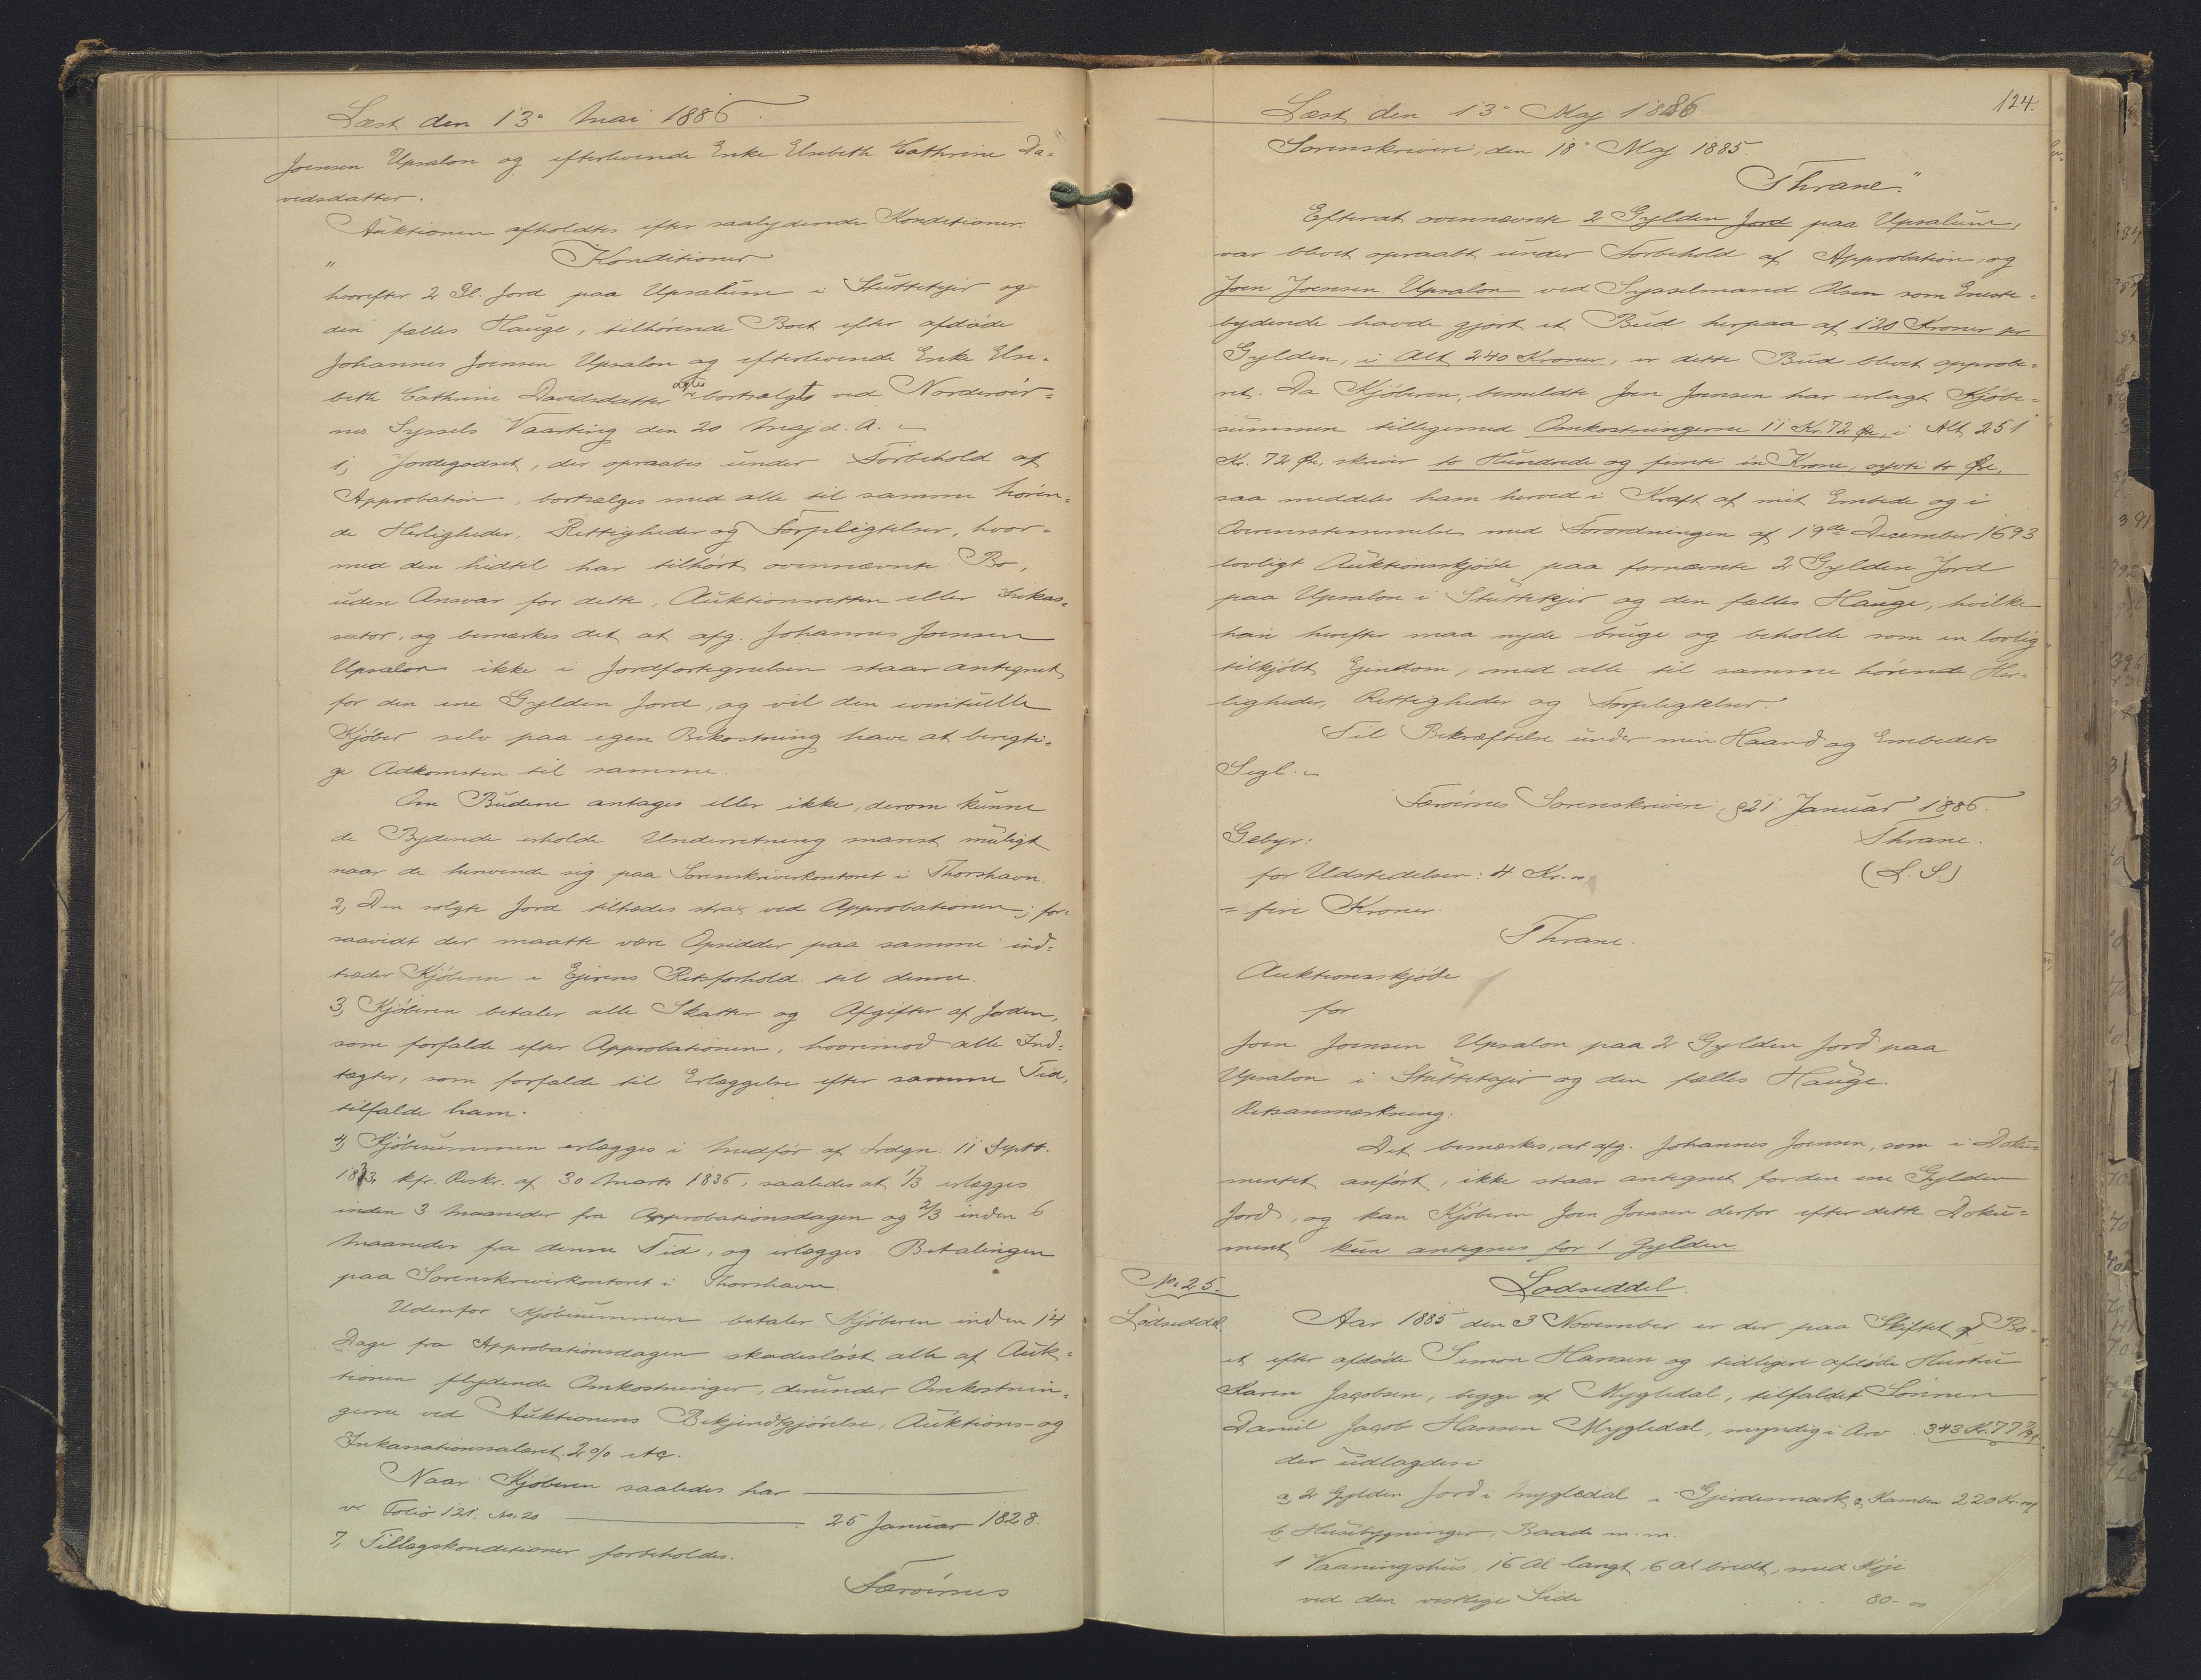 Læst den 13' Mai 1886.
Joensen Upsalon og efterlevende Enke Elsebeth Cathrine Da-
vidsdatter.
Auktionen afholdtes efter saalydende Konditioner:
" Konditioner
hvorefter 2 Gl. Jord paa Upsalum i Stuttetejir og
den fælles Hauge, tilhørende Boet efter afdøde
Johannes Joensen Upsalon og efterlevende Enke Else-
beth Cathrine Davidsdatter bortsælges ved Norderøer-
nes Syssels Vaarting den 20 Maj d. A.
1, Jordegodset, der opraabes under Forbehold af
Approbation, bortsælges med alle til samme høren-
de Herligheder, Rettigheder og Forpligtelser, hvor-
med den hidtil har tilhørt ovennævnte Bo,
uden Ansvar for dette, Auktionsretten eller Inkas-
sator, og bemærkes det at afg. Johannes Joensen
Upsalon ikke i Jordfortegnelsen staar antegnet
for den ene Gylden Jord, og vil den eventuelle
Kjøber selv paa egen Bekostning have at berigti-
ge Adkomsten til samme.
Om Budene antages eller ikke, derom kunne
de Bydende erholde Underretning snarest muligt
naar de henvende sig paa Sorenskriverkontoret i Thorshavn.
2, Den solgte Jord tiltrædes strax ved Approbationen; for-
saavidt der maatte være Opsidder paa samme ind-
træder Kjøberen i Ejerens Retsforhold til denne.
3, Kjøberen betaler alle Skatter og Afgifter af Jorden,
som forfalde efter Approbationen, hvorimod alle Ind-
tægter, som forfalde til Erlæggelse efter samme Tid,
tilfalde ham.
4, Kjøbesummen erlægges i Medfør af Frdgn. 11 Septr.
1833 kfr. Reskr. af 30 Marts 1836, saaledes at 1/3 erlægges
inden 3 Maaneder fra Approbationsdagen og 2/3 inden 6
Maaneder fra denne Tid, og erlægges Betalingen
paa Sorenskriverkontoret i Thorshavn.
Udenfor Kjøbesummen betaler Kjøberen inden 14
Dage fra Approbationsdagen skadesløst alle af Auk-
tionen flydende Omkostninger, derunder Omkostnin-
gerne ved Auktionens Bekjendtgjørelse, Auktions- og
Inkassationssalæret 2 %
Naar Kjøberen saaledes har
Folio 121. No. 20 25 Januar 1828.
7, Tillægskonditioner forbeholdes.
Færøernes
124.
Læst den 13' Maj 1886.
Sorenskriveri, den 18' Maj 1885.
Thrane."
Efterat ovennævnte 2 Gylden Jord paa Upsalum,
var blevet opraabt under Forbehold af Approbation, og
Joen Joensen Upsalon ved Sysselmand Olsen som Eneste-
bydende havde gjort et Bud herpaa af 120 Kroner pr
Gylden, i Alt 240 Kroner, er dette Bud blevet approbe-
ret. Da Kjøberen, bemeldte Joen Joensen har erlagt Kjøbe-
summen tilligemed Omkostningerne 11 Kr. 72 Øre, i Alt 251
Kr. 72 Øre, skriver to Hundrede og femti en Krone, sytti to Øre,
saa meddeles ham herved i Kraft af mit Embede og i
Overensstemmelse med Forordningen af 19de December 1693
lovligt Auktionsskjøde paa fornævnte 2 Gylden Jord
paa Upsalon i Stuttetejir og den fælles Hauge, hvilke
han herefter maa nyde bruge og beholde som en lovlig
tilkjøbt Ejendom, med alle til samme hørende Her-
ligheder, Rettigheder og Forpligtelser.
Til Bekræftelse under min Haand og Embedets
Segl.
Færøernes Sorenskriveri, 21 Januar 1886.
Gebyr: Thrane.
for Udstedelsen: 4 Kr. (L. S.)
= fire Kroner.
Thrane.
Auktionsskjøde
for
Joen Joensen Upsalon paa 2 Gylden Jord paa
Upsalon i Stuttetejir og den fælles Hauge.
Retsanmærkning:
Det bemærkes, at afg. Johannes Joensen, som i Doku-
mentet anført, ikke staar antegnet for den ene Gylden
Jord, og kan Kjøberen Joen Joensen derfor efter dette Doku-
ment kun antegnes for 1 Gylden.
No. 25. Lodseddel.
Lodseddel. Aar 1885 den 3 November er der paa Skiftet af Bo-
et efter afdøde Simon Hansen og tidligere afdøde Hustru
Karen Jacobsen, begge af Mygledal, tilfaldet Sønnen
Daniel Jacob Hansen Mygledal, myndig i Arv 343 Kr. 77
der udlagdes i
a, 2 Gylden Jord i Mygledal i Gjerdesmark & Kamben 220 Kr.
b, Huusbygninger, Baade m. m.
1 Vaaningshus, 16 Al langt, 6 Al bredt, med Køje
ved den vestlige Side 80-